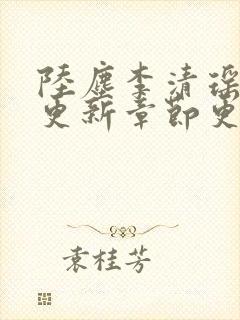 陸塵李清瑤
更新章節更
袁桂芳